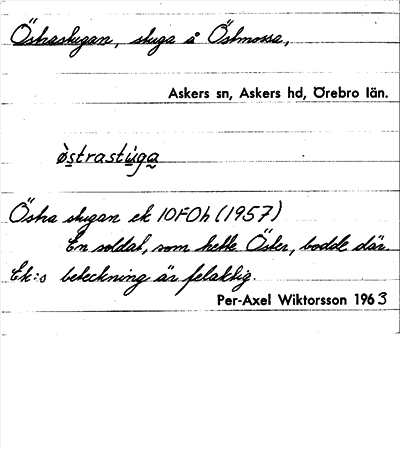 Östrastugan, stuga å Östmossa,
Askers sn, Askers hd, Örebro län.
òstrastùga
Östra stugan ek 10F0h (1957)
En soldat, som hette Öster, bodde där.
Ek:s beteckning är felaktig.
Per-Axel Wiktorsson 1963